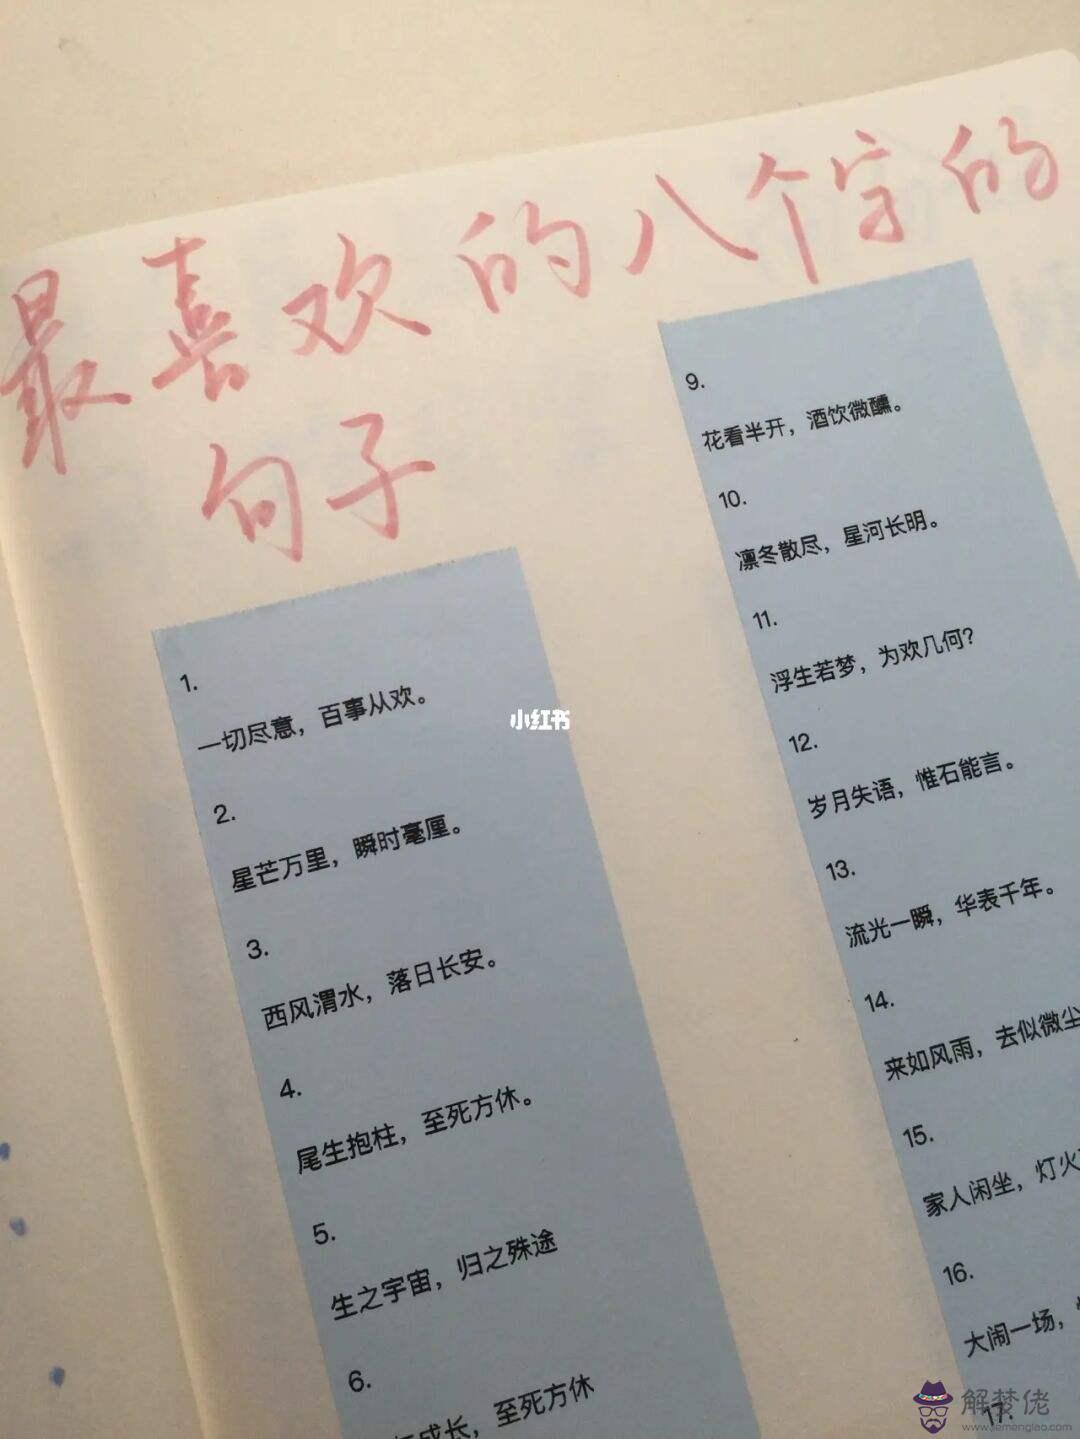 最喜欢的八个字的
句子
1.
一切尽意，百事从欢。
2.
星芒万里，瞬时毫厘。
3.
西风渭水，落日长安。
4.
尾生抱柱，至死方休。
5.
生之宇宙，归之殊途
6.
成长，至死方休
9.
花看半开，酒饮微醺。
10.
凛冬散尽，星河长明。
11.
浮生若梦，为欢几何？
12.
岁月失语，惟石能言。
13.
流光一瞬，华表千年。
14.
来如风雨，去似微尘
15.
家人闲坐，灯火
16.
大闹一场，
17.
小红书
解梦佬
www.jiemenglao.com